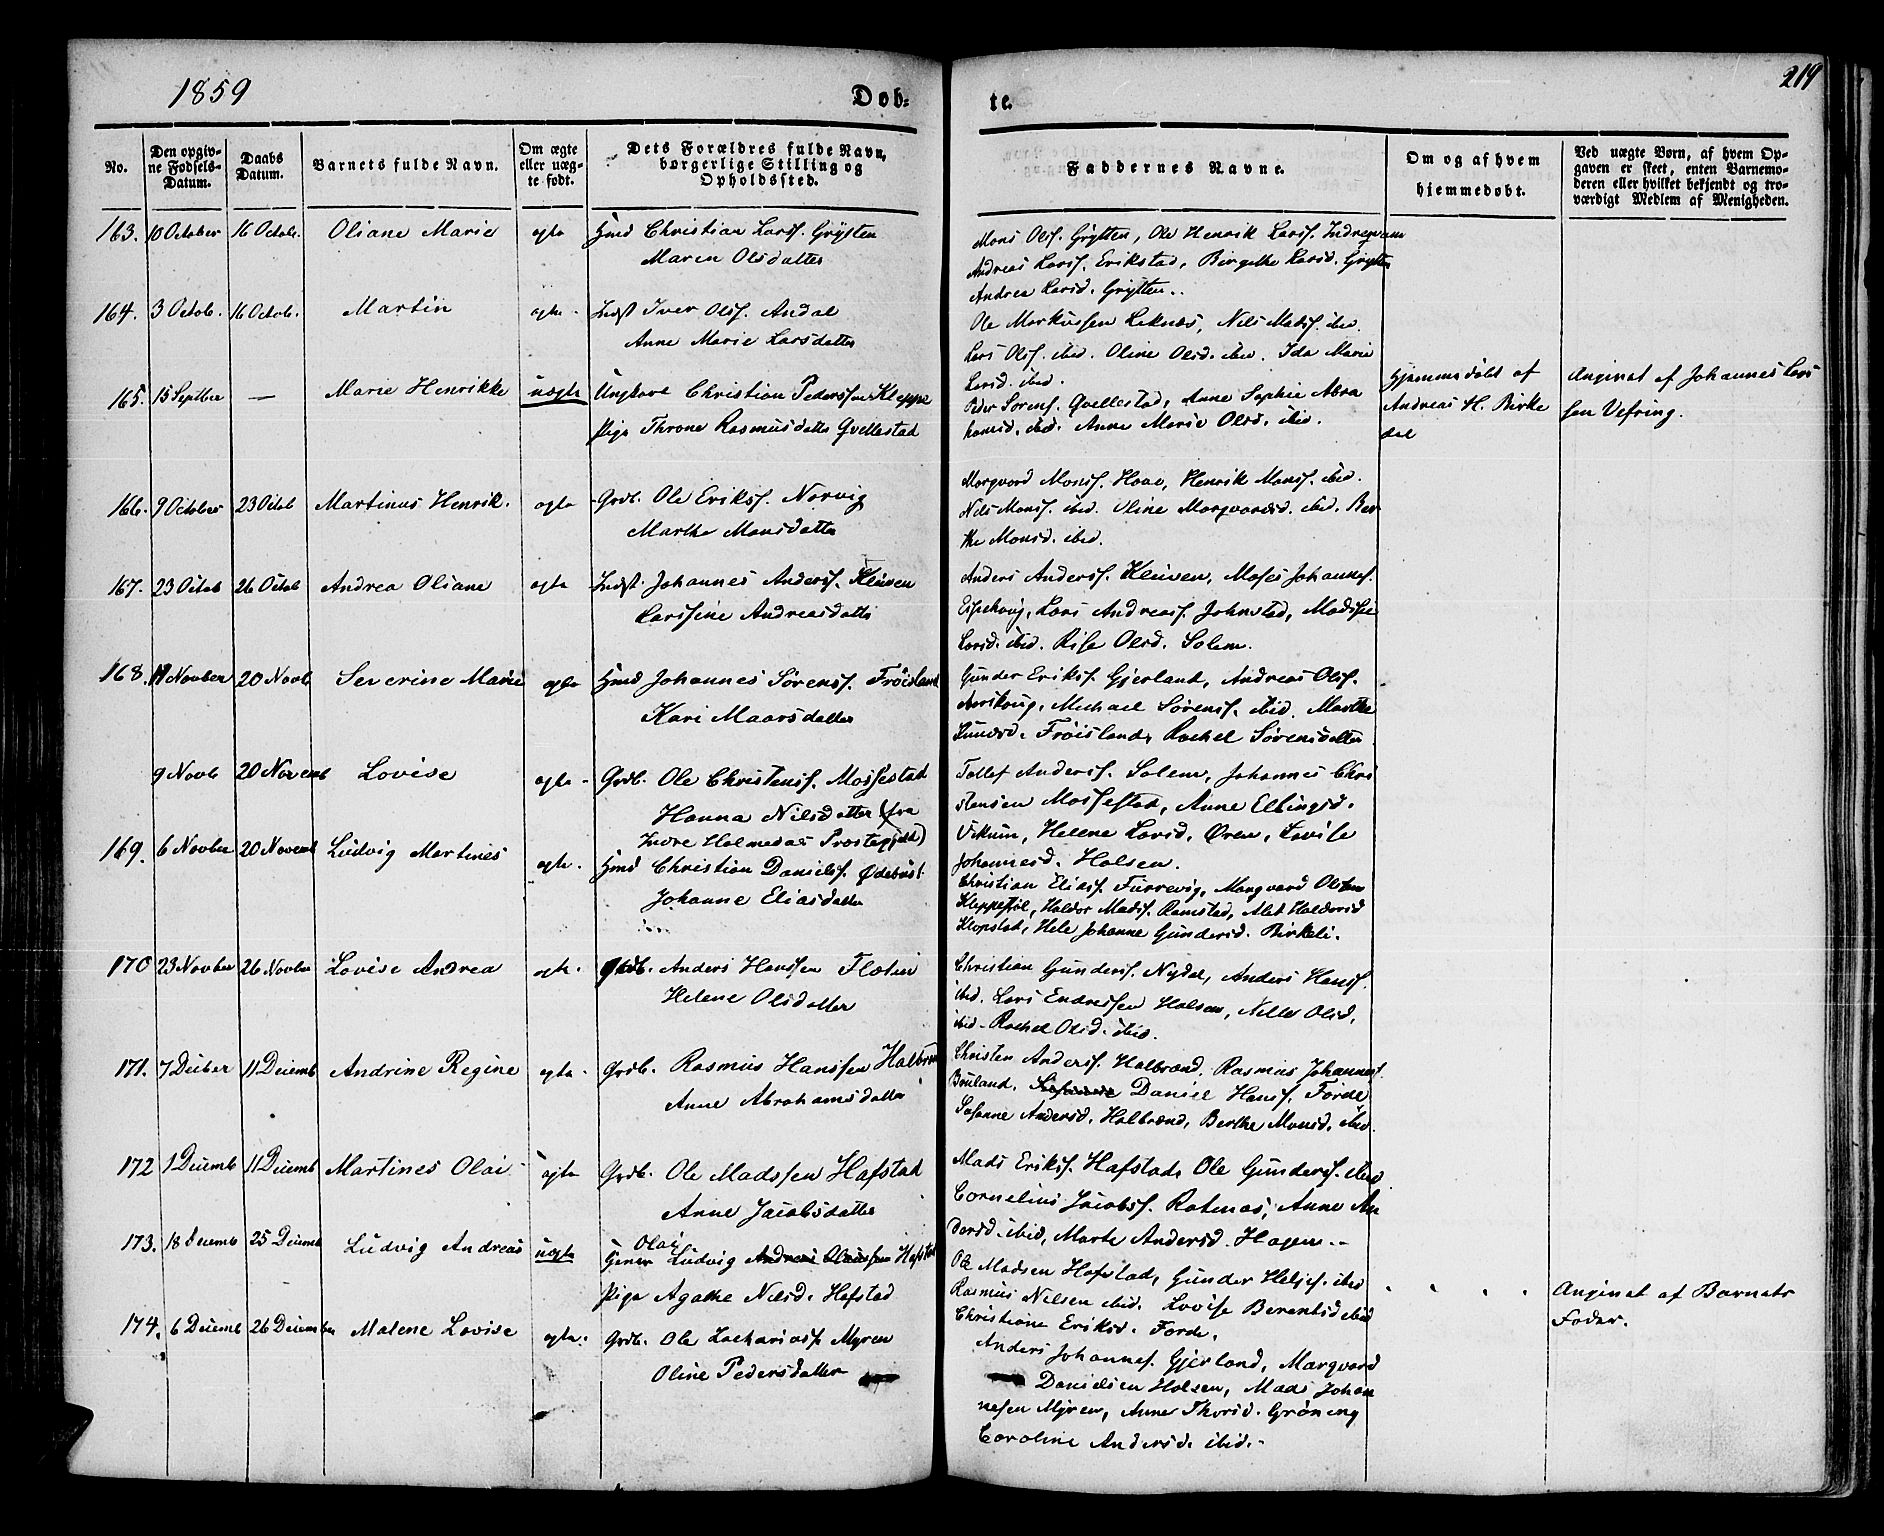 1859
Døb-
te.
219
No.
Den opgiv-
ne Fødsels-
Datum.
Daabs
Datum.
Barnets fulde Navn.
Om ægte
eller uæg-
te født.
Dets Forældres fulde Navn,
borgerlige Stilling og
Opholdssted.
Faddernes Navne.
Om og af hvem
hjemmedøbt.
Ved uægte Børn, af hvem Op-
gaven er skeet, enten Barnemo-
deren eller hvilket bekjendt og tro-
værdigt Medlem af Menigheden.
163. 10 October 16 Octob. Oliane Marie ægte Hmd Christian Larsf. Grytten
Maren Olsdatter
Mons Olsf. Grytten, Ole Henrik Larsf. Indrevam
Andreas Larsf. Erikstad, Birgithe Larsd. Grytten
Andrea Larsd. Grytten.
164. 3 Octob. 16 Octob. Martin ægte Indst Iver Olsf. Andal
Anne Marie Larsdatter
Ole Markussen Leknæs, Nils Madsf. ibid.
Lars Olsf. ibid. Oline Olsd. ibid. Ida Marie
Larsd. ibid.
165. 15 Septber — Marie Henrikke uægte Ungkarl Christian Pederssen Kleppe
Pige Throne Rasmusdatter Qvellestad
Peder Sørensf. Qvellestad, Anne Sophie Abra
hamsd. ibid. Anne Marie Olsd. ibid.
Hjemmedøbt af
Andreas H. Birke
dal
Angivet af Johannes Lars
sen Vefring.
166. 9 October 23 Octob Martinus Henrik. ægte Grdb. Ole Eriksf. Norvig
Marthe Monsdatter
Marqvard Monsf. Haav, Henrik Monsf. ibid.
Nils Monsf. ibid. Oline Marqvardsd. ibid. Ber
the Monsd. ibid.
167. 23 Octob 26 Octob Andrea Oliane ægte Indst. Johannes Andersf. Kleiven
Larssine Andreasdatter
Anders Andersf. Kleiven, Moses Johannesf.
Espekvig, Lars Andreasf. Johnstad, Madssie
Larsd. ibid. Rise Olsd. Solem.
168. 11 Novber 20 Novb Severine Marie ægte Hmd Johannes Sørensf. Frøisland
Kari Maarsdatter
Gunder Eriksf. Gjerland, Andreas Olsf.
Aarskoug, Michael Sørensf. ibid. Marthe
Frøisland, Rachel Sørensdatter
9 Novb 20 Novemb Lovise ægte Grdb. Ole Christensf. Mossestad
Hanna Nilsdatter (fra
Indre Holmedals Præstegjeld)
Tollef Andersf. Solem, Johannes Chri
stensen Mossestad, Anne Ellingsd.
Vikum, Helene Larsd. Øren, Lovise
Johannesd. Halsen.
169. 6 Novber 20 Novemb Ludvig Martines ægte. Hmd Christian Danielsf. Ødebust
Johanne Eliasdatter
Christian Eliasf. Furrevig, Marqvard Olsen
Kleppestøl, Haldor Madsf. Ramstad, Alet Haldorsd
Klopstad, Hele Johanne Gundersd. Birkeli.
170 23 Novber 26 Novber Lovise Andrea ægte. Grdb. Anders Hanssen Flaten
Helene Olsdatter
Christian Gundersf. Nydal, Anders Hansf.
ibid. Lars Endressen Halsen, Nille Olsd.
ibid. Rachel Olsd. ibid.
171. 7 Decber 11 Decemb Andrine Regine ægte Grdb. Rasmus Hanssen Halbrend
Anne Abrahamsdatter
Christen Andersf. Halbrænd, Rasmus Johannesf.
Bruland, Daniel Hansf. Førde,
Susanne Andersd. Halbrænd, Berthe Monsd. ibid.
172 1 Decemb 11 Decemb Martines Olai ægte Grdb. Ole Madssen Hafstad
Anne Jacobsdatter
Mads Eriksf. Hafstad, Ole Gundersf. ibid
Cornelius Jacobsf. Rotnæs, Anne An
dersd. ibid, Marte Andersd. Hagen.
173. 18 Decemb 25 Decemb Ludvig Andreas uægte Olai
Ludvig Andreas Olaussen Hafstad
Pige Agathe Nilsd. Hafstad
Ole Madsen Hafstad, Gunder Heljesf. ibid
Rasmus Nilsen ibid. Lovise Berentsd ibid
Christiane Eriksd. Førde.
Angivet af Barnets
Fader.
174. 6 Decemb 26 December Malene Lovise ægte. Grdb. Ole Zachariasf. Myren
Oline Pedersdatter
Anders Johannesf. Gjerland, Marqvard
Danielsen Halsen, Mads Johan
nesen Myren, Anne Thorsd. Grøning
Caroline Andersd. ibid.